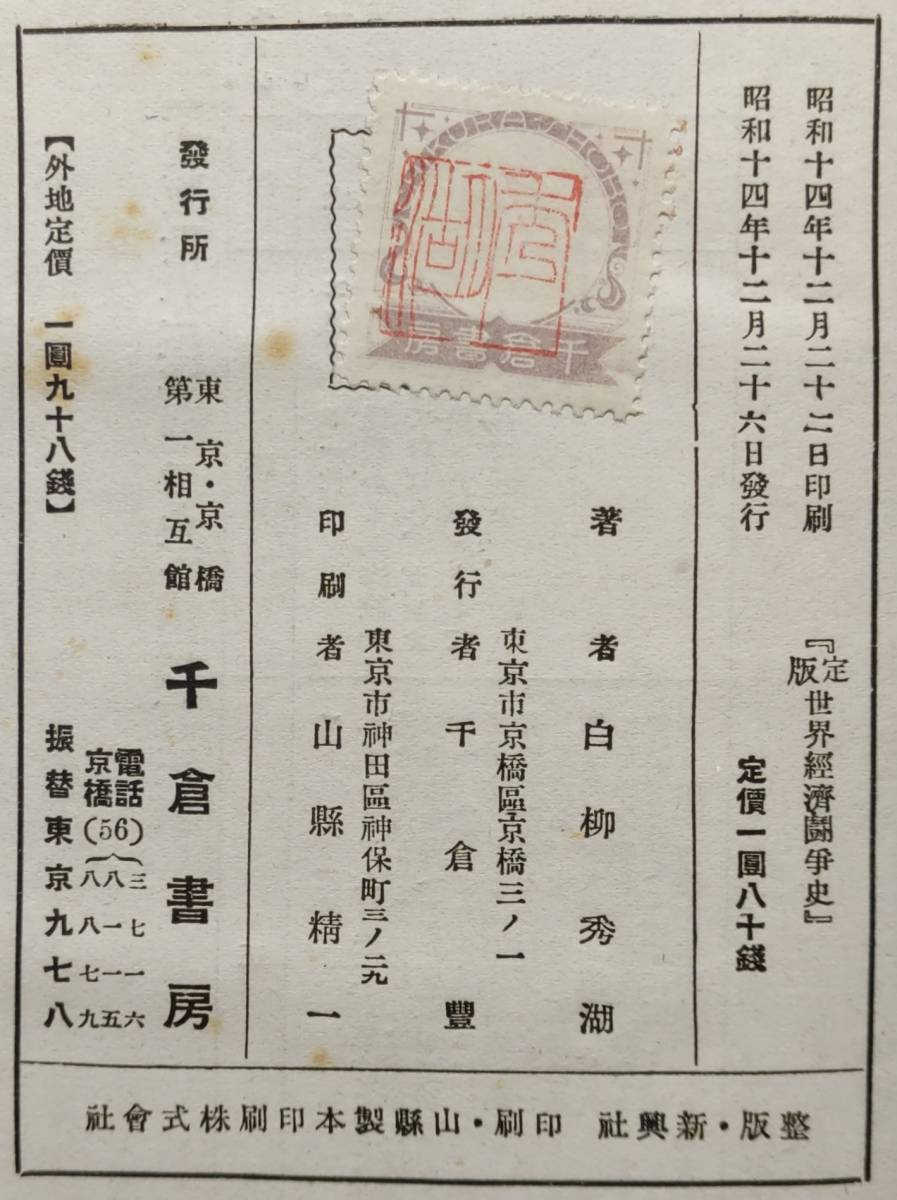 昭和十四年十二月二十二日印刷
昭和十四年十二月二十六日發行
『定版世界經濟鬪爭史』
定價一圓八十錢
KURA-SHOBO
千倉書房
秀湖
著者 白柳秀湖
東京市京橋區京橋三ノ一
發行者 千倉豐
東京市神田區神保町三ノ二九
印刷者 山縣精一
發行所
東京・京橋
第一相互館
千倉書房
電話京橋(56)
三七一六
八一一五
八八七九
振替東京九七八
【外地定價 一圓九十八錢】
整版・新興社 印刷・山縣製本印刷株式會社